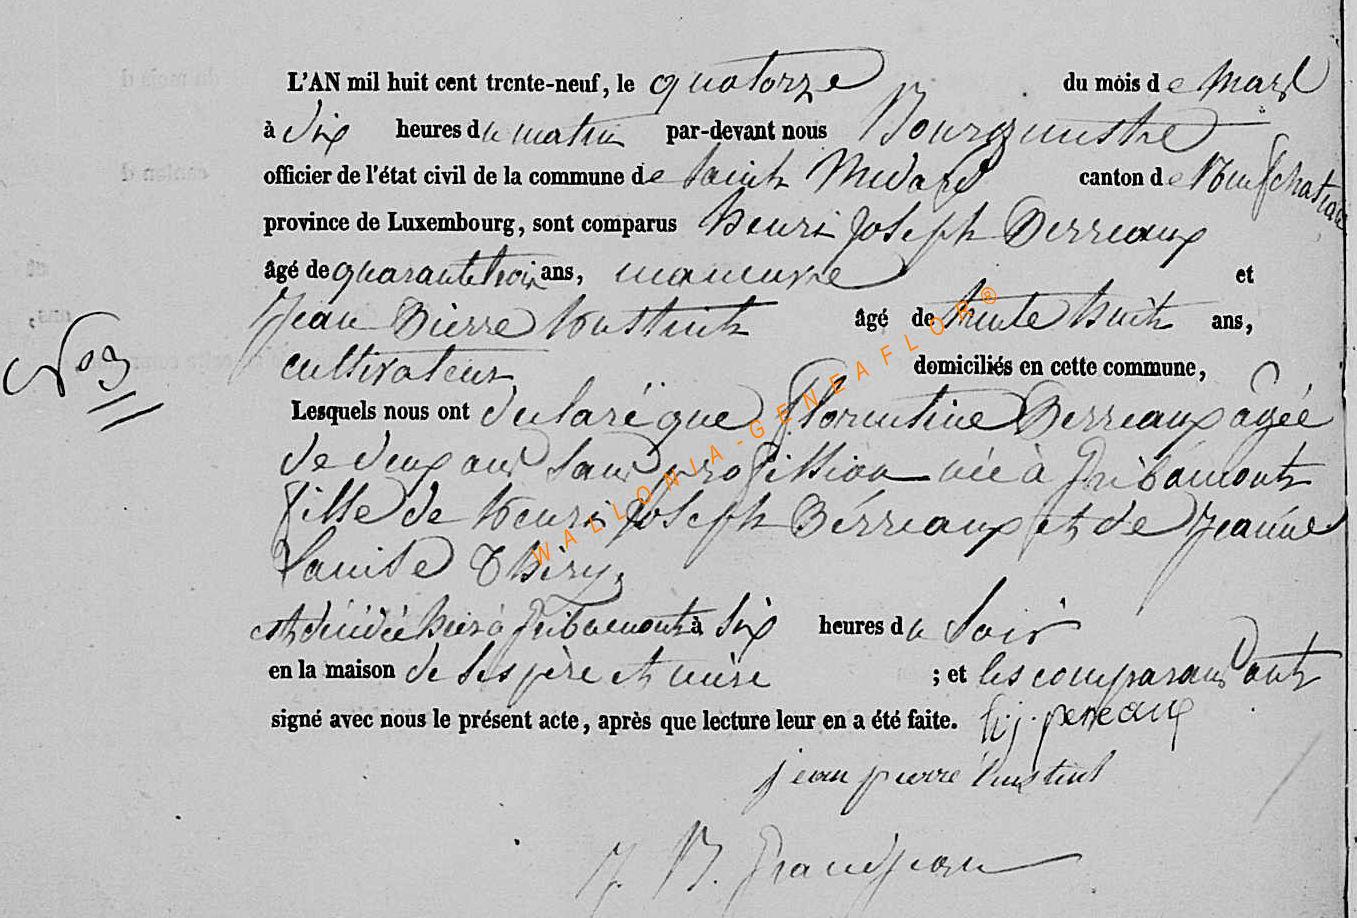 L'AN mil huit cent trente-neuf, le quatorze du mois de Mars
à dix heures du matin par-devant nous Bourgmestre
officier de l'état civil de la commune de Saint Médard canton de Neufchateau
province de Luxembourg, sont comparus henri Joseph Perreaux
âgé de quarante trois ans, manœuvre et
Jean Pierre hustin âgé de trente huit ans,
cultivateur domiciliés en cette commune,
N° 3
Lesquels nous ont déclaré que Florentine Perreaux agée
de deux ans sans profession née à Gribomont
fille de henri Joseph Pérreaux et de Jeanne
Louise Thiry
est décédée hier à Gribomont à six heures du Soir
en la maison de ses père et mère ; et les comparans ont
signé avec nous le présent acte, après que lecture leur en a été faite. h.j. perreaux
jean pierre
J. B. Grandjean
WALLONIA-GENEAFLOR®